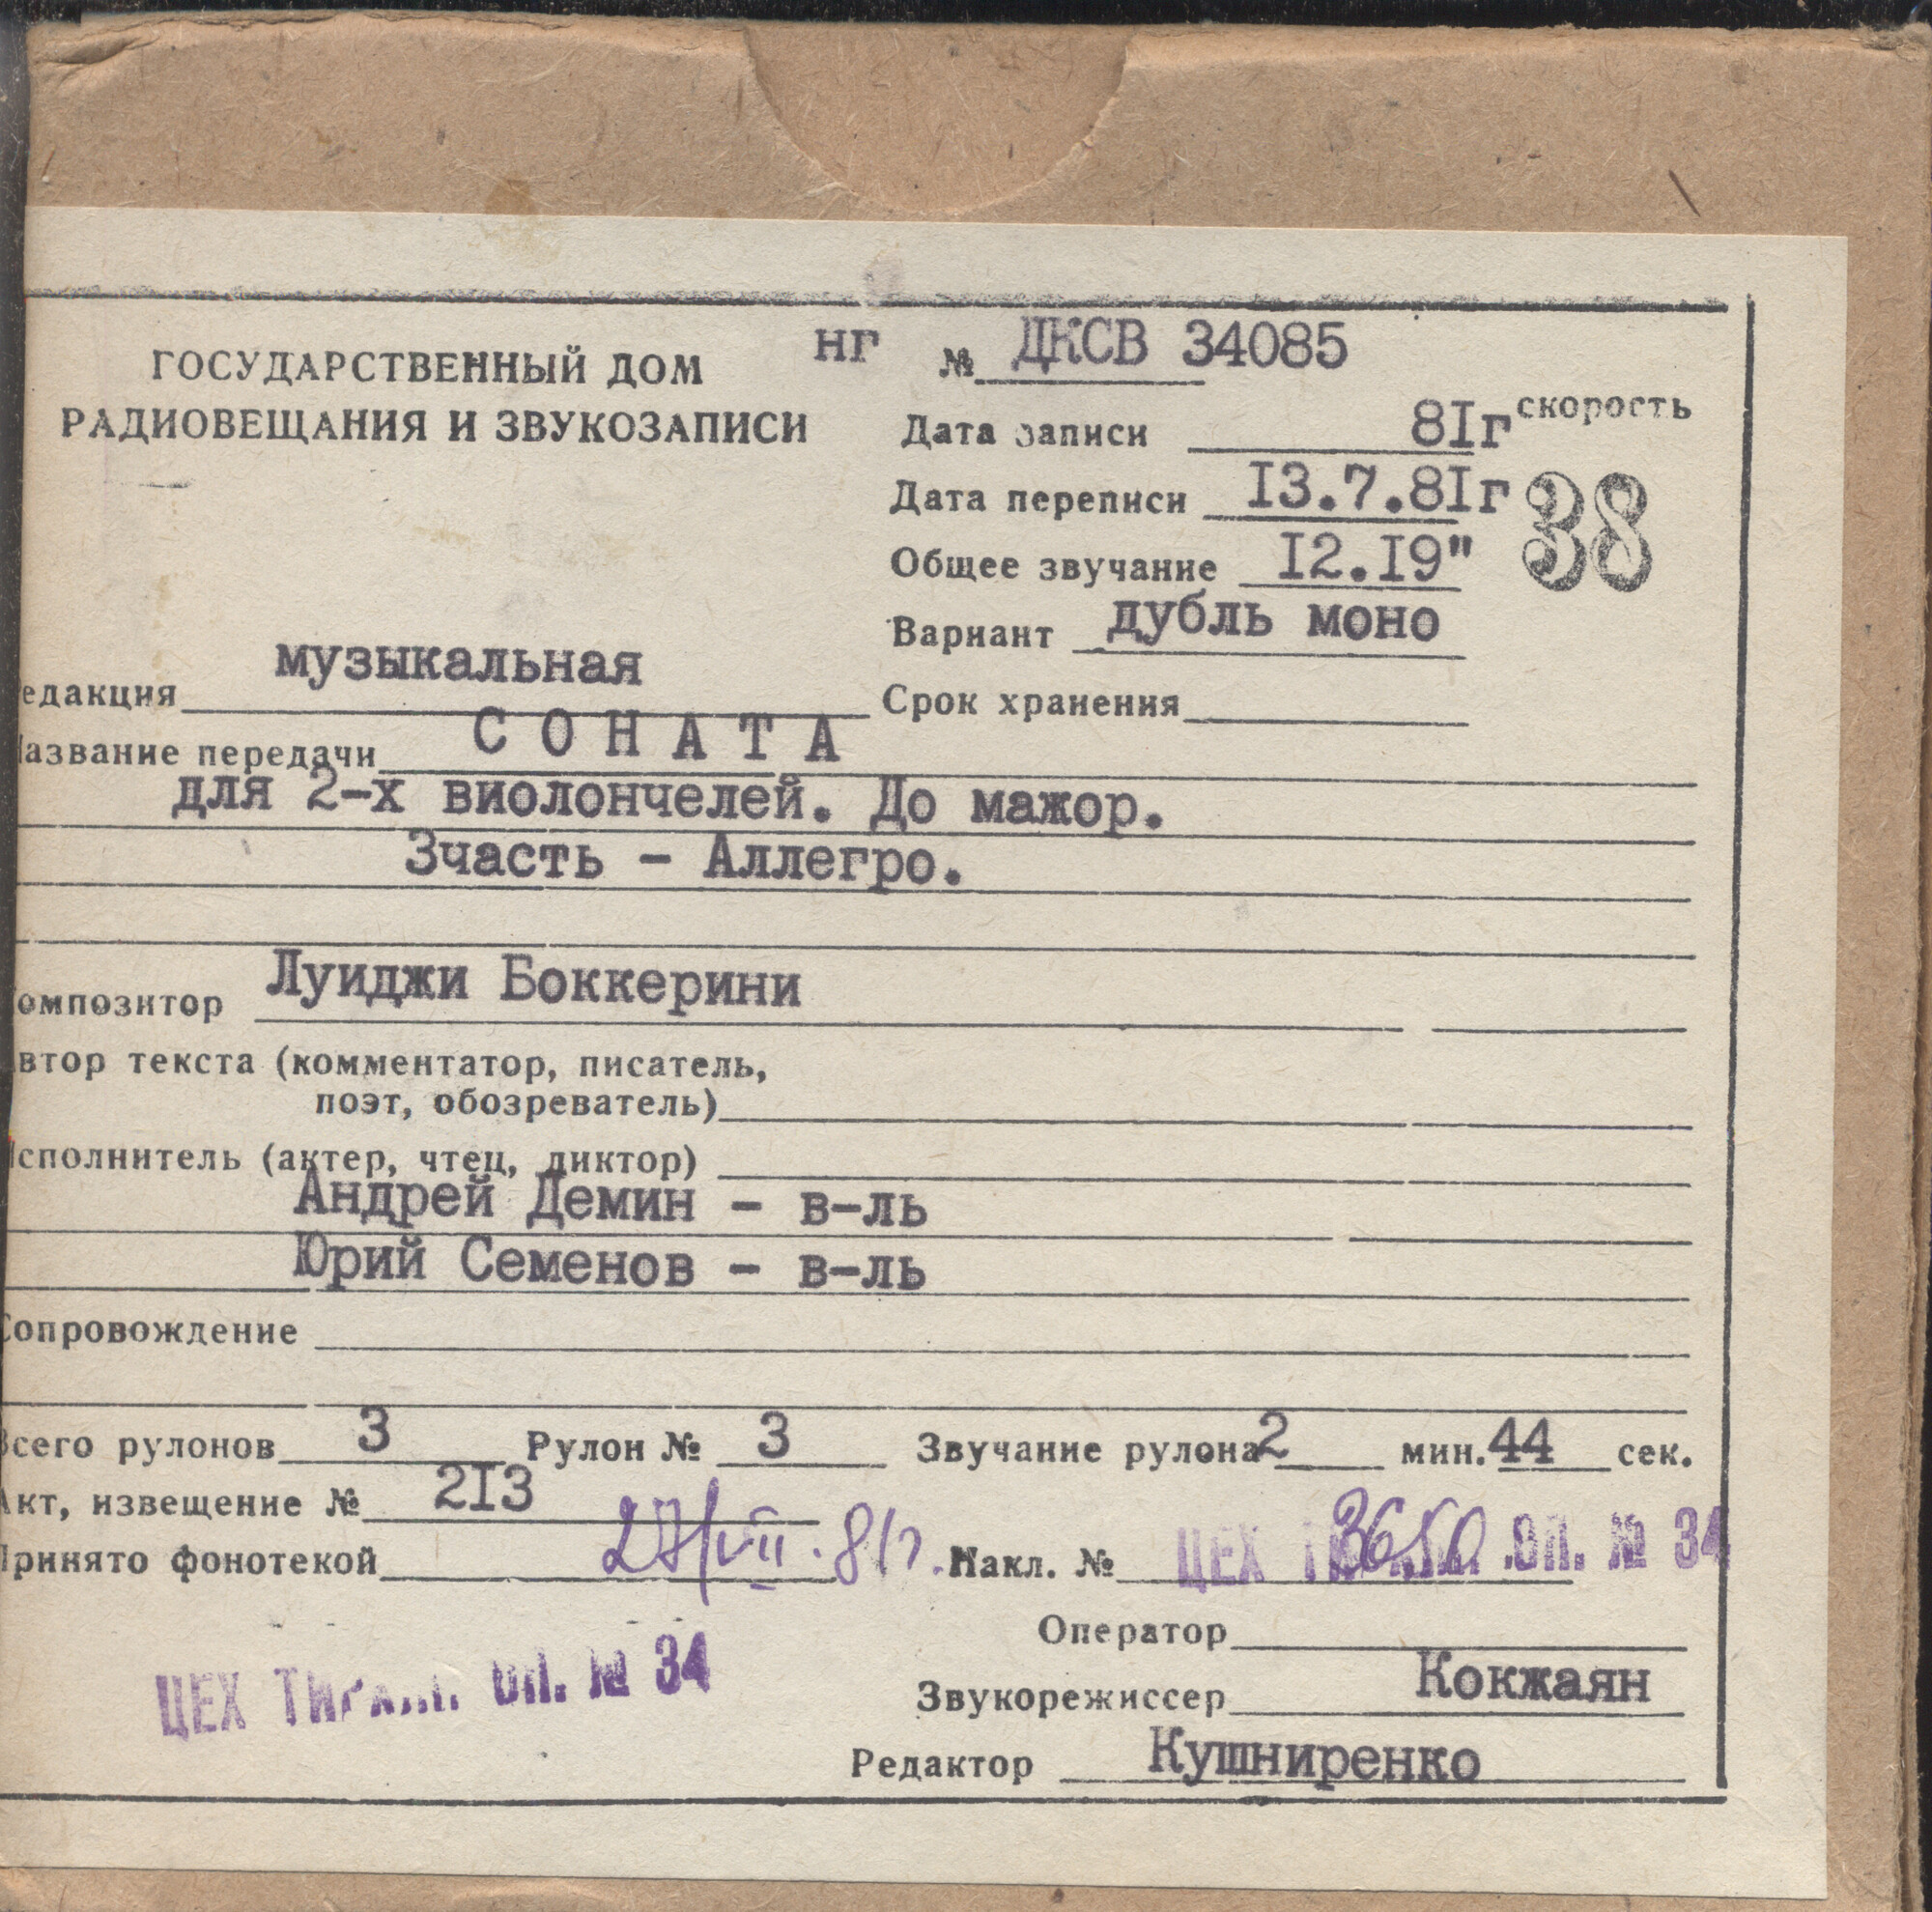 нг № ДКСВ 34085
ГОСУДАРСТВЕННЫЙ ДОМ
РАДИОВЕЩАНИЯ И ЗВУКОЗАПИСИ
Дата записи 8Iг
скорость
Дата переписи I3.7.8Iг
38
Общее звучание I2.I9"
Вариант дубль моно
едакция музыкальная
Срок хранения
азвание передачи СОНАТА
для 2-х виолончелей. До мажор.
3часть - Аллегро.
омпозитор Луиджи Боккерини
втор текста (комментатор, писатель,
поэт, обозреватель)
сполнитель (актер, чтец, диктор)
Андрей Демин - в-ль
Юрий Семенов - в-ль
Сопровождение
Всего рулонов 3 Рулон № 3 Звучание рулона 2 мин. 44 сек.
Акт, извещение № 2I3
Принято фонотекой 27/VII.81г. Накл. № ЦЕХ ОП. № 34
Оператор
ЦЕХ ОП. № 34
Звукорежиссер Кокжаян
Редактор Кушниренко